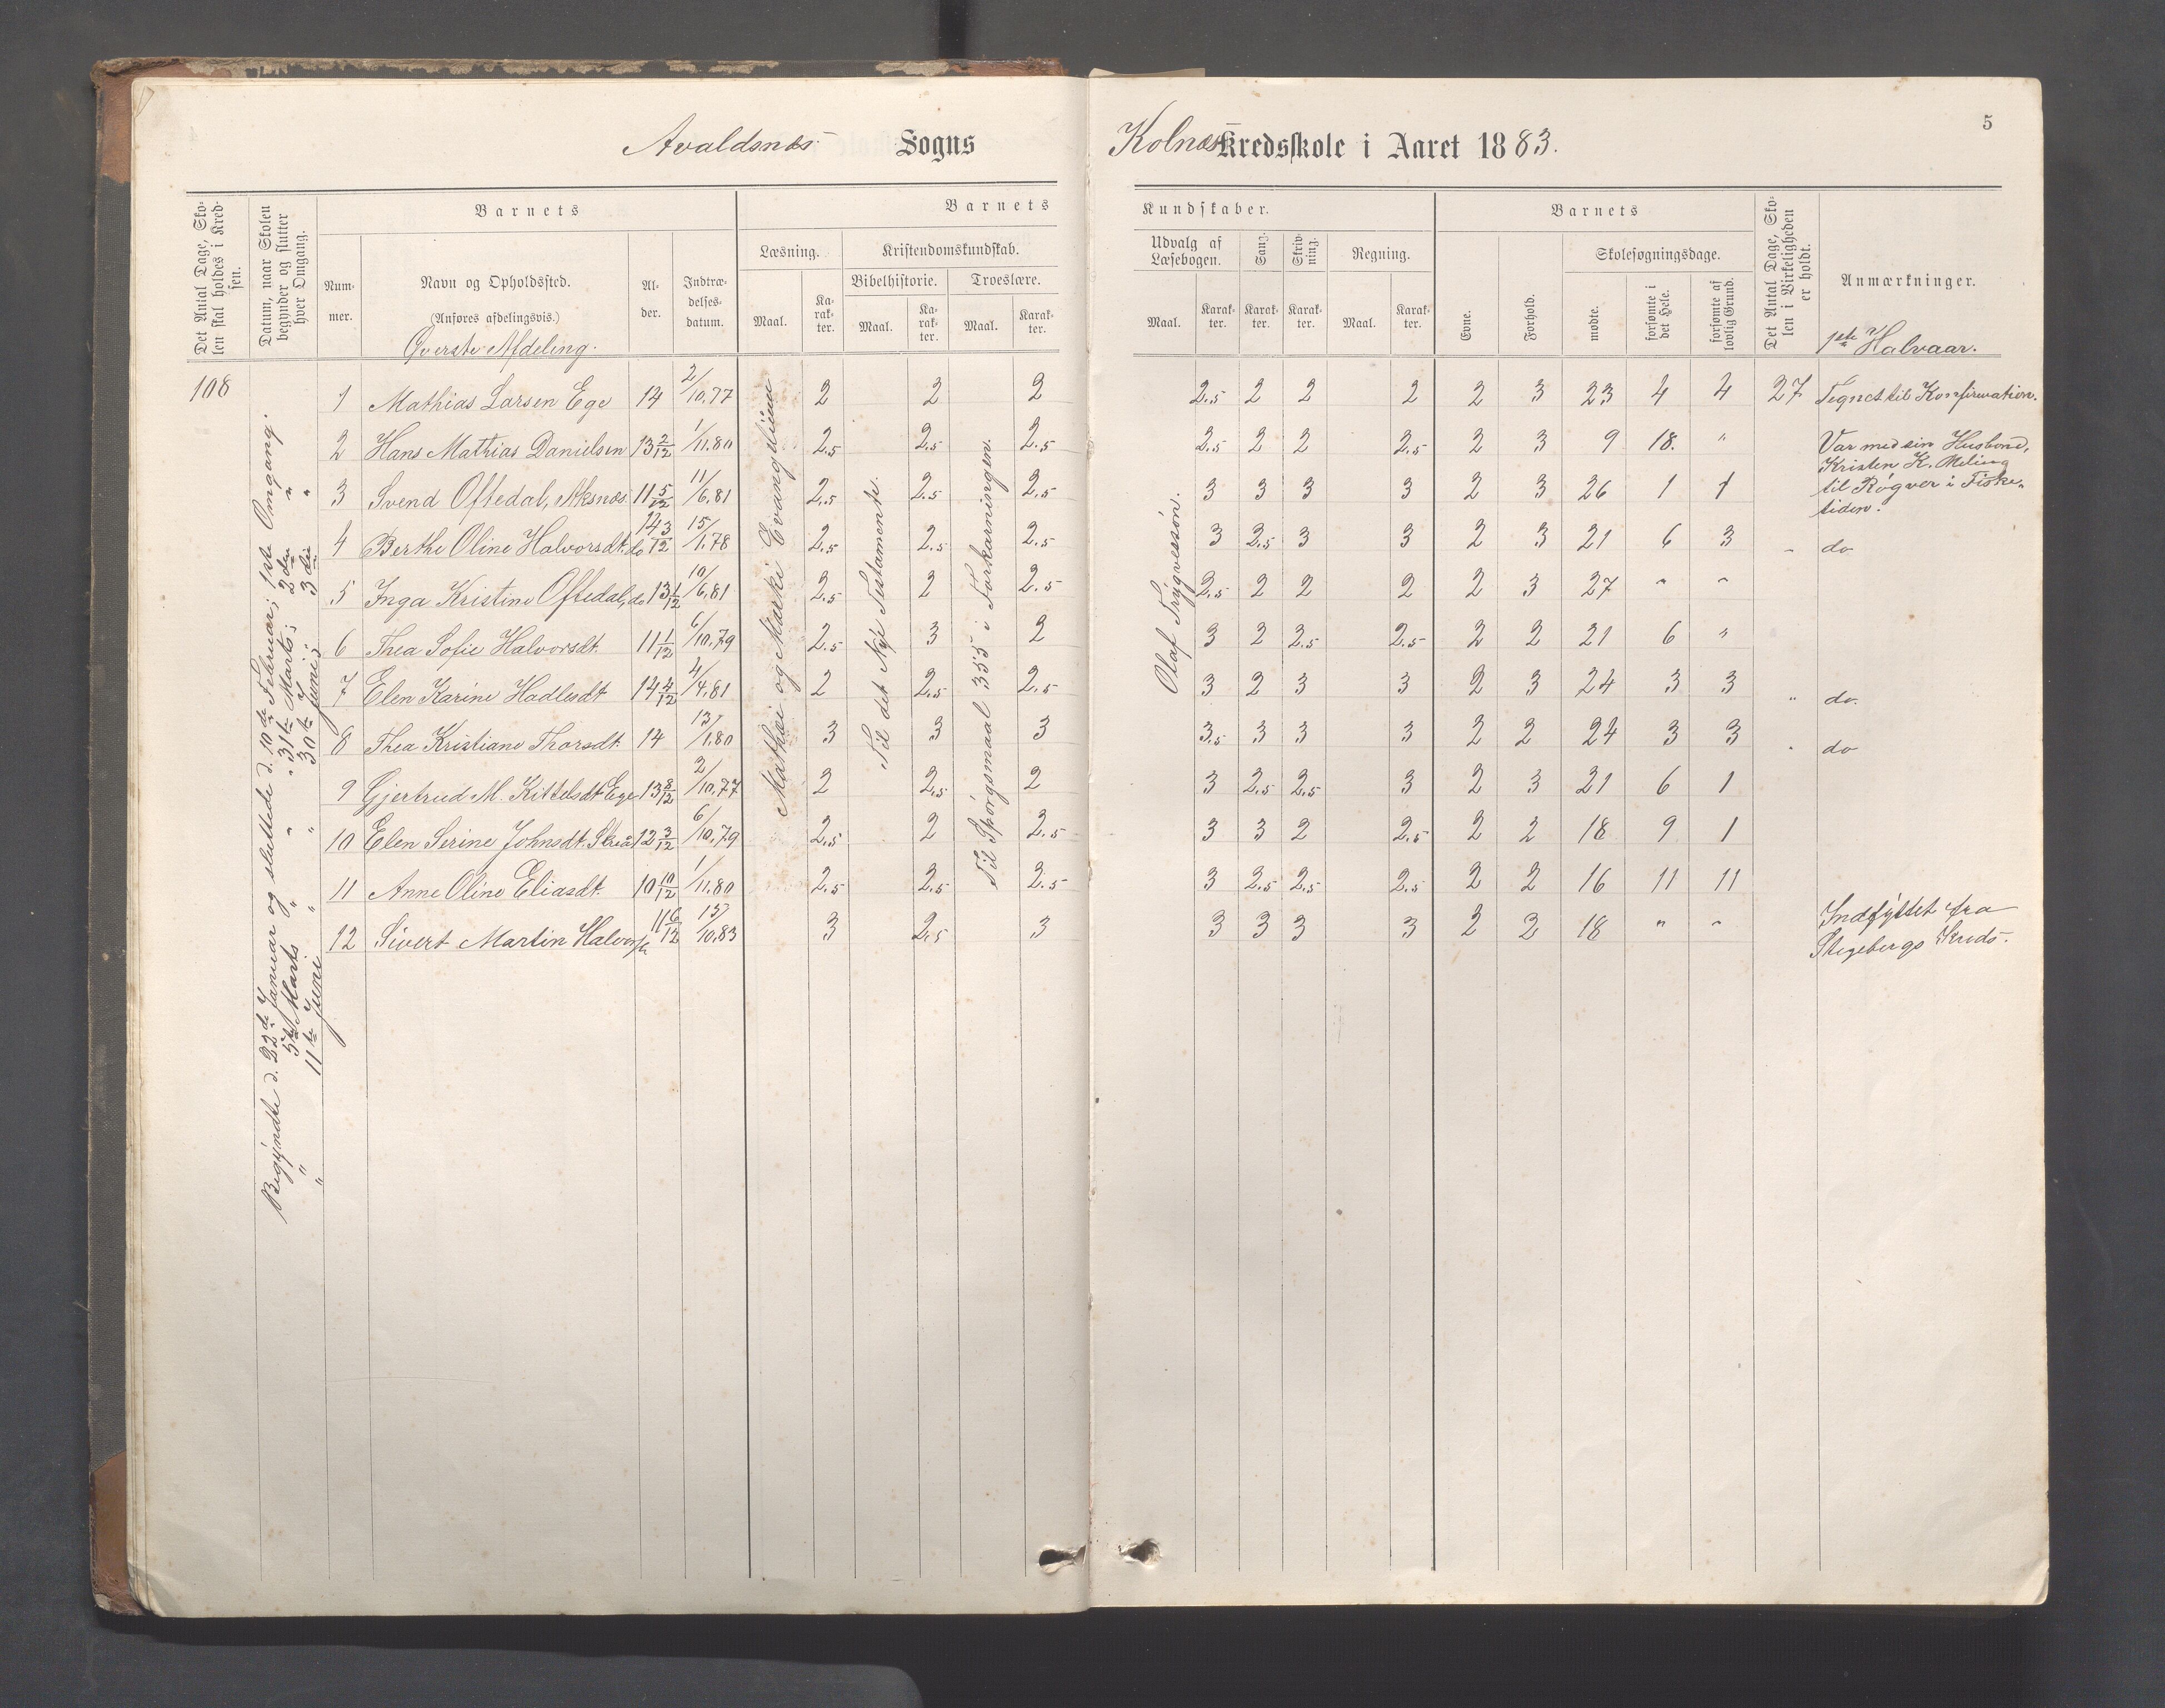 5
Avaldsnes Sogns
Kolnæs Kredsskole i Aaret 1883.
Det Antal Dage, Skolen skal holdes i Kredsen.
Datum, naar Skolen begynder og slutter hver Omgang.
Barnets
Nummer.
Navn og Opholdssted.
(Anføres afdelingsvis.)
Øverste Afdeling.
Alder.
Indtrædelsesdatum.
Barnets
Kundskaber.
Læsning.
Maal.
Karakter.
Kristendomskundskab.
Bibelhistorie.
Maal.
Karakter.
Troeslære.
Maal.
Karakter.
Udvalg af Læsebogen.
Maal.
Karakter.
Sang.
Karakter.
Skrivning.
Karakter.
Regning.
Maal.
Karakter.
Barnets
Evne.
Forhold.
Skolesøgningsdage.
mødte.
forsømte i det Hele.
forsømte af lovlig Grund.
Det Antal Dage, Skolen i Virkeligheden er holdt.
Anmærkninger.
1ste Halvaar.
108
Begyndte d. 22de Januar og sluttede d. 10de Februar; 1ste Omgang.
" 5te Marts " " 31te Marts; 2den "
" 11te Juni " " 30te Juni; 3die "
Mathæi og Marki Evangelium
Til det Nye Testamente.
Til Spørgsmaal 355 i Forkarningen.
Olaf Trygvessøn.
1 Mathias Larsen Ege 14 2/10.77 2 2 2 2.5 2 2 2 2 3 23 4 4 27 Tegnet til Konfirmation.
2 Hans Mathias Danielsen 13 2/12 1/11.80 2.5 2.5 2.5 2.5 2 2 2.5 2 3 9 18. " Var med sin Husbond, Kristen K. Meling til Røgver i Fisketiden.
3 Svend Oftedal, Aksnæs. 11 5/12 11/6.81 2.5 2.5 2.5 3 3 3 3 2 3 26 1 1
4 Berthe Oline Halvorsdt. do 14 3/12 15/1.78 2.5 2.5 2.5 3 2.5 3 3 2 3 21 6 3 " do
5 Inga Kristine Oftedal, do 13 1/12 10/6.81 2.5 2 2.5 2.5 2 2 2 2 3 27 " "
6 Thea Sofie Halvorsdt. 11 1/12 6/10.79 2.5 3 2 3 2 2.5 2.5 2 2 21 6 "
7 Elen Karine Hadlesdt. 14 4/12 4/4.81 2 2.5 2.5 3 2 3 3 2 3 24 3 3 " do.
8 Thea Kristiane Thorsdt. 14 13/1.80 3 3 3 3.5 3 3 3 2 2 24 3 3 " do
9 Gjertrud M. Kittelsdt. Ege 13 8/12 2/10.77 2 2.5 2 3 2.5 2.5 3 2 3 21 6 1
10 Elen Serine Johnsdt. 12 3/12 6/10.79 2.5 2 2.5 3 3 2 2.5 2 2 18 9 1
11 Anne Oline Eliasdt. 10 10/12 1/11.80 2.5 2.5 2.5 3 2.5 2.5 2.5 2 2 16 11 11
12 Sivert Martin Halvors. 11 6/12 15/10.83 3 2.5 3 3 3 3 3 2 2 18 " " Indflyttet fra Stegebergs Kreds.